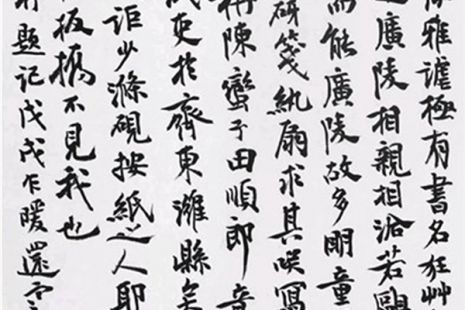 雅謔極有書名狂艸
廣陵相親相洽若鷗
而能廣陵故多明童
研箋紈扇求其咲寫
陳蠻子田順郎音
吏於齊東濰縣矣
詎少滌硯按紙之人耶
板橋不見我也
題記戊戌乍暖還